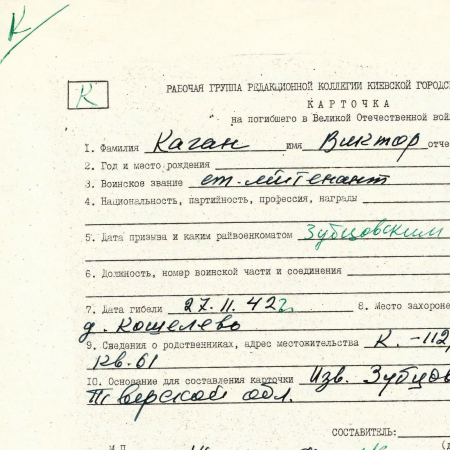 К
К
РАБОЧАЯ ГРУППА РЕДАКЦИОННОЙ КОЛЛЕГИИ КИЕВСКОЙ ГОРОДС
КАРТОЧКА
на погибшего в Великой Отечественной вой
1. Фамилия Каган имя Виктор отче
2. Год и место рождения
3. Воинское звание ст. лейтенант
4. Национальность, партийность, профессия, награды
5. Дата призыва и каким райвоенкоматом Зубцовским
6. Должность, номер воинской части и соединения
7. Дата гибели 27.11.42г. 8. Место захороне
д. Кошелево
9. Сведения о родственниках, адрес местожительства К. -112,
кв. 61
10. Основание для составления карточки Изв. Зубцов
Тверской обл.
СОСТАВИТЕЛЬ:
М.П.